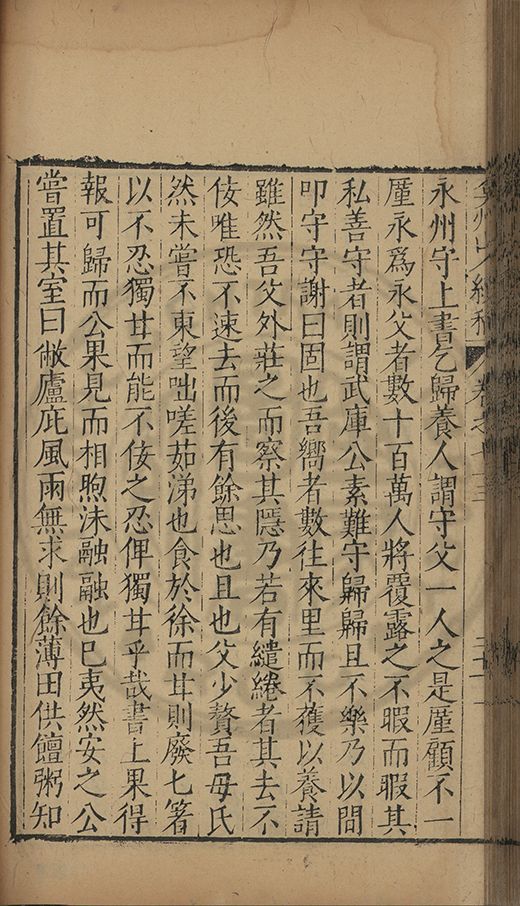 弇州山人續稿 卷之七十三 二十一
永州守上書乞歸養人謂守父一人之是厪顧不一
厪永爲永父者數十百萬人將覆露之不暇而暇其
私善守者則謂武庫公素難守歸歸且不樂乃以問
叩守守謝曰固也吾嚮者數往來里而不獲以養請
雖然吾父外莊之而察其隱乃若有繾綣者其去不
侒唯恐不速去而後有餘思也且也父少贅吾母氏
然未嘗不東望咄嗟茹涕也食於徐而甘則廢匕箸
以不忍獨甘而能不侒之忍俾獨甘乎哉書上果得
報可歸而公果見而相煦沫融融也已夷然安之公
嘗置其室曰敝廬庇風雨無求則餘薄田供饘粥知